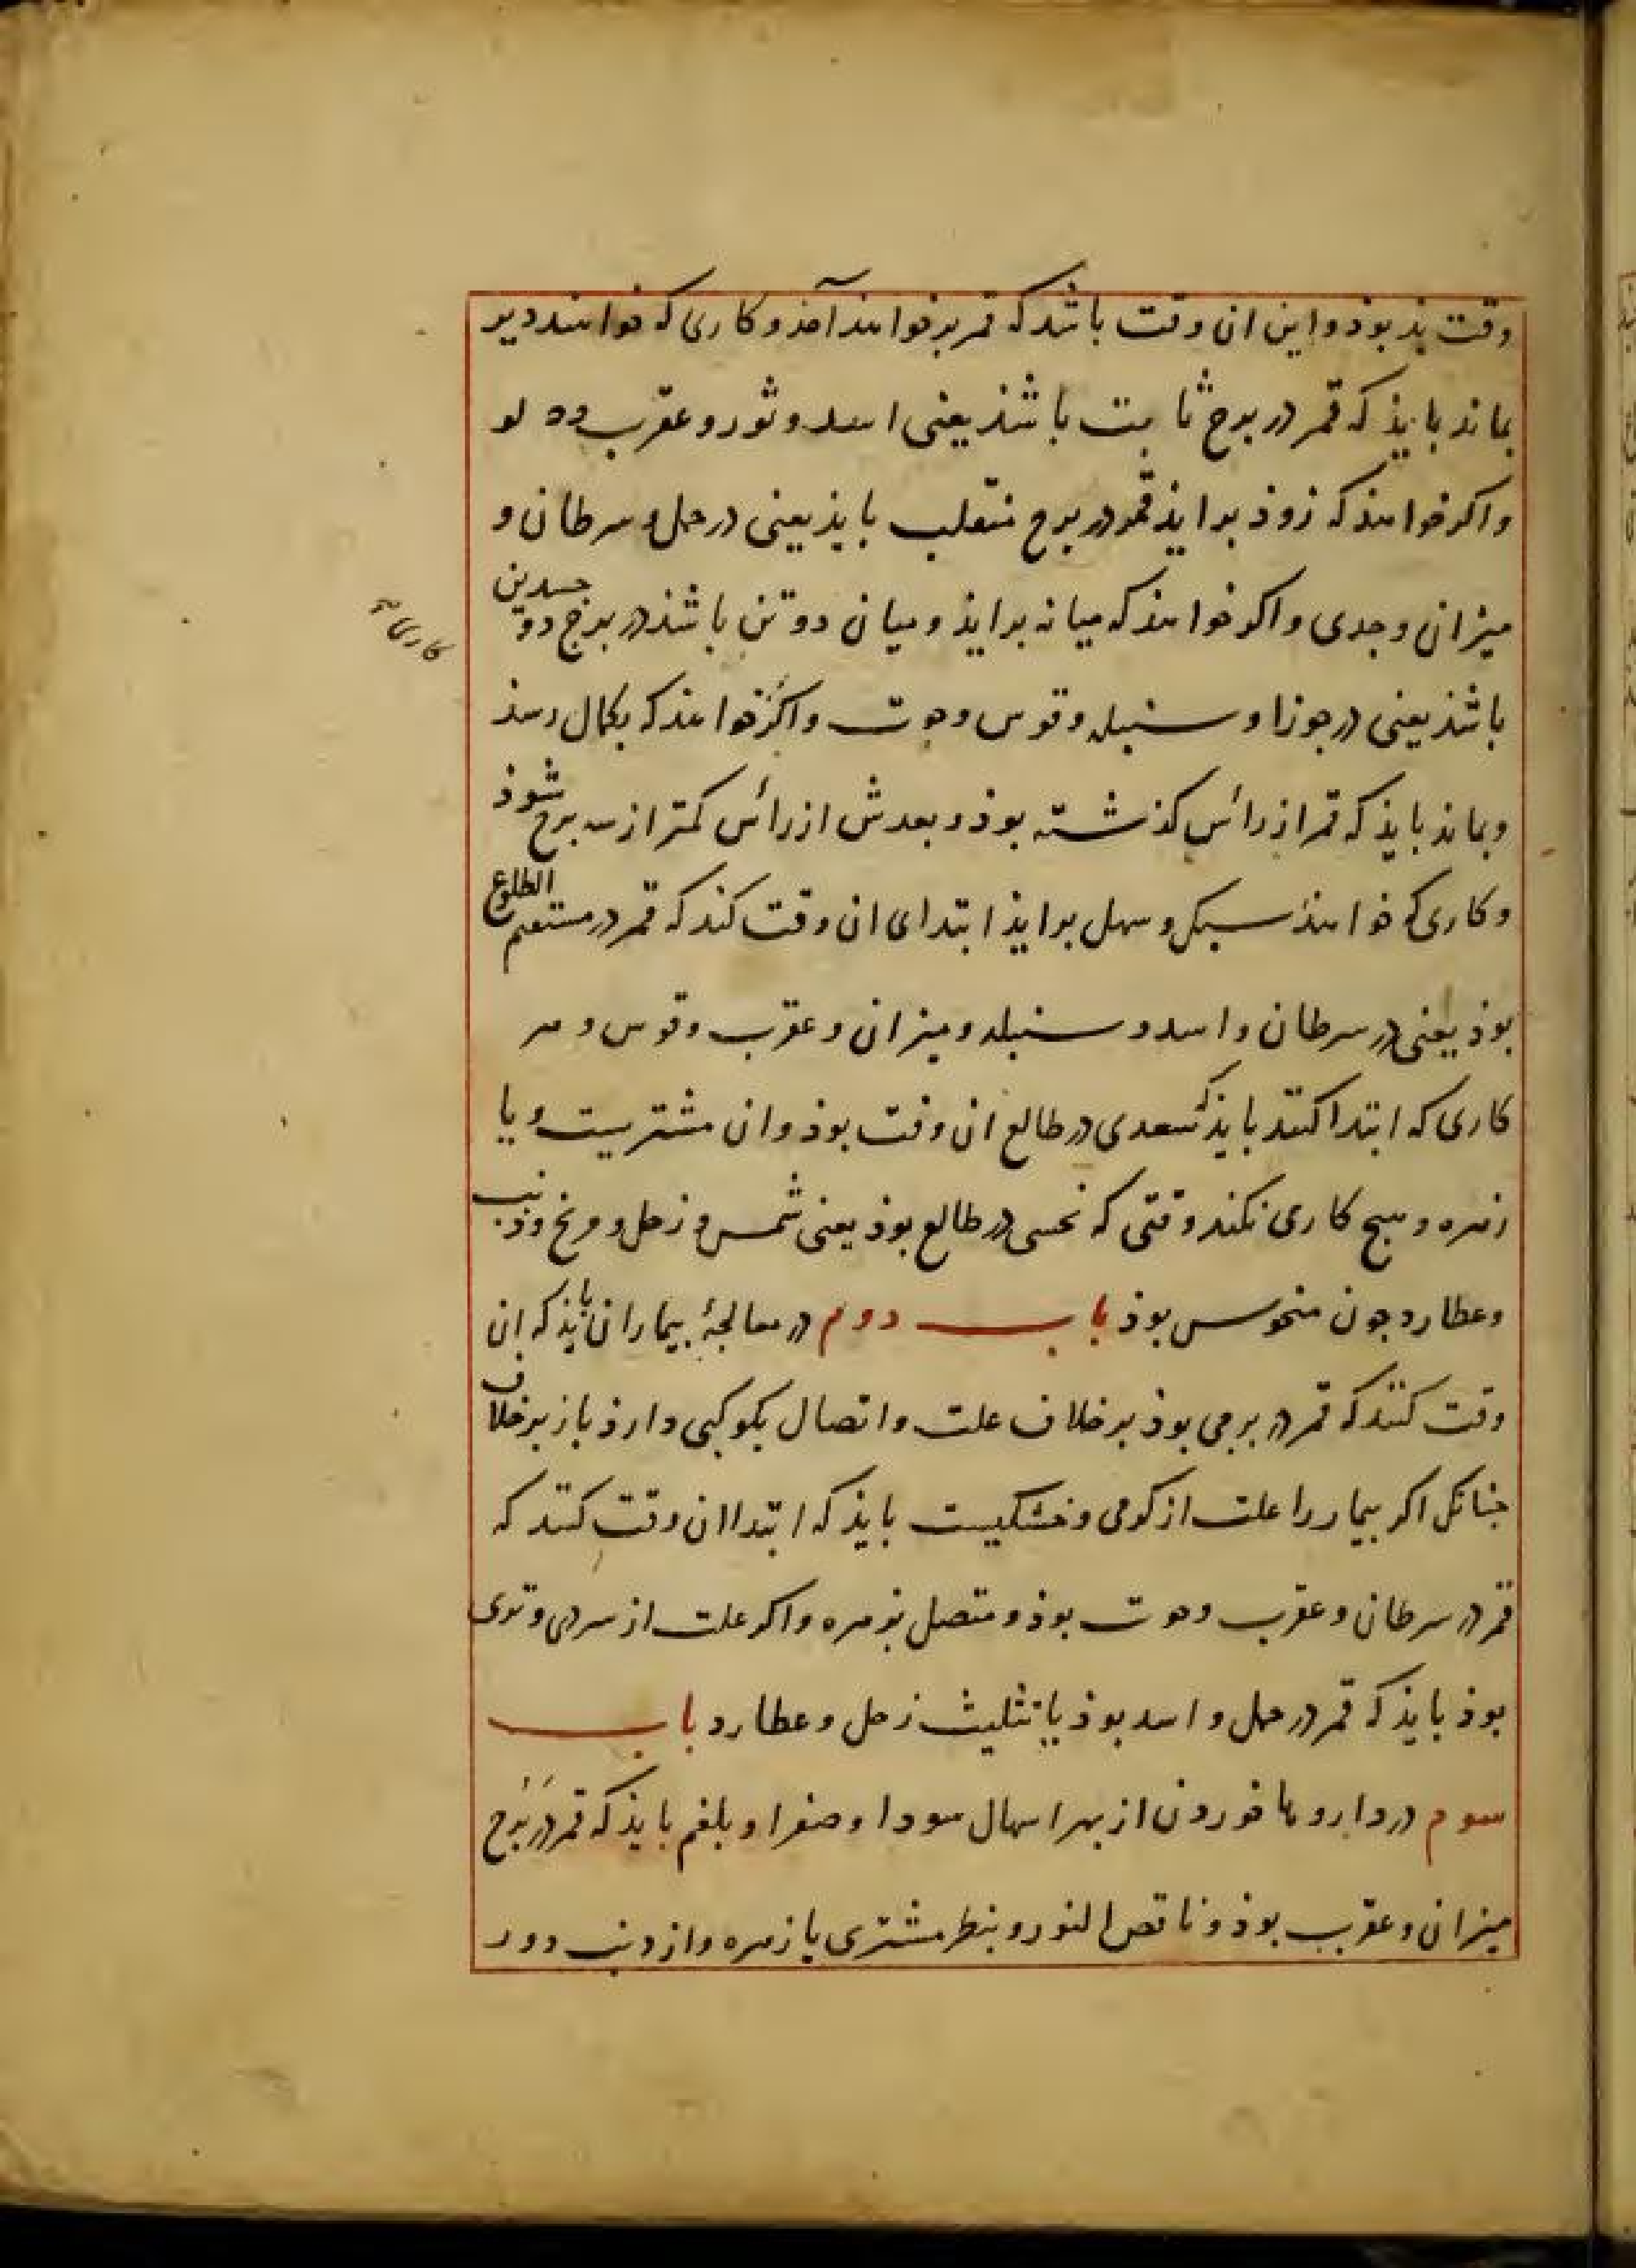 وقت بذ بوذ و این ان وقت باشد که قمر بر خواهند آمذ و کاری که خواهند دیر
بماند بایذ که قمر در برج ثابت باشذ یعنی اسد و ثور و عقرب و دلو
واکر خواهند که زوذ برایذ قمر در برج منقلب بایذ یعنی در حمل و سرطان و
میزان و جدی و اکر خواهند که میانه برایذ و میان دو تن باشذ در برج ذو جسدین
کاری
باشذ یعنی در جوزا و سنبله و قوس و حوت و اکر خواهند که بکمال رسذ
و بماند بایذ که قمر از رأس کذشته بوذ و بعدش از رأس کمتر از سه برج شوذ
و کاری که خواهند سبک و سهل برایذ ابتدای ان وقت کند که قمر در مستقیم الطلوع
بوذ یعنی در سرطان و اسد و سنبله و میزان و عقرب و قوس و هر
کاری که ابتدا کنند بایذ که سعدی در طالع ان وقت بوذ و ان مشتریست و یا
زهره و هیج کاری نکند وقتی که نحسی در طالع بوذ یعنی شمس و زحل و مریخ و ذنب
و عطارد جون منحوس بوذ باب دوم در معالجهٔ بیماران بایذ که ان
وقت کنند که قمر در برجی بوذ بر خلاف علت و اتصال بکوکبی دارذ باز بر خلاف
جنانک اکر بیمار را علت از کرمی و خشکیست بایذ که ابتدا ان وقت کنند که
قمر در سرطان و عقرب و حوت بوذ و متصل بزهره و اکر علت از سردی و تری
بوذ بایذ که قمر در حمل و اسد بوذ یا بتثلیث زحل و عطارد باب
سوم در داروها خوردن از بهر اسهال سودا و صفرا و بلغم بایذ که قمر در برج
میزان و عقرب بوذ و ناقص النور و بنظر مشتری یا زهره و از ذنب دور